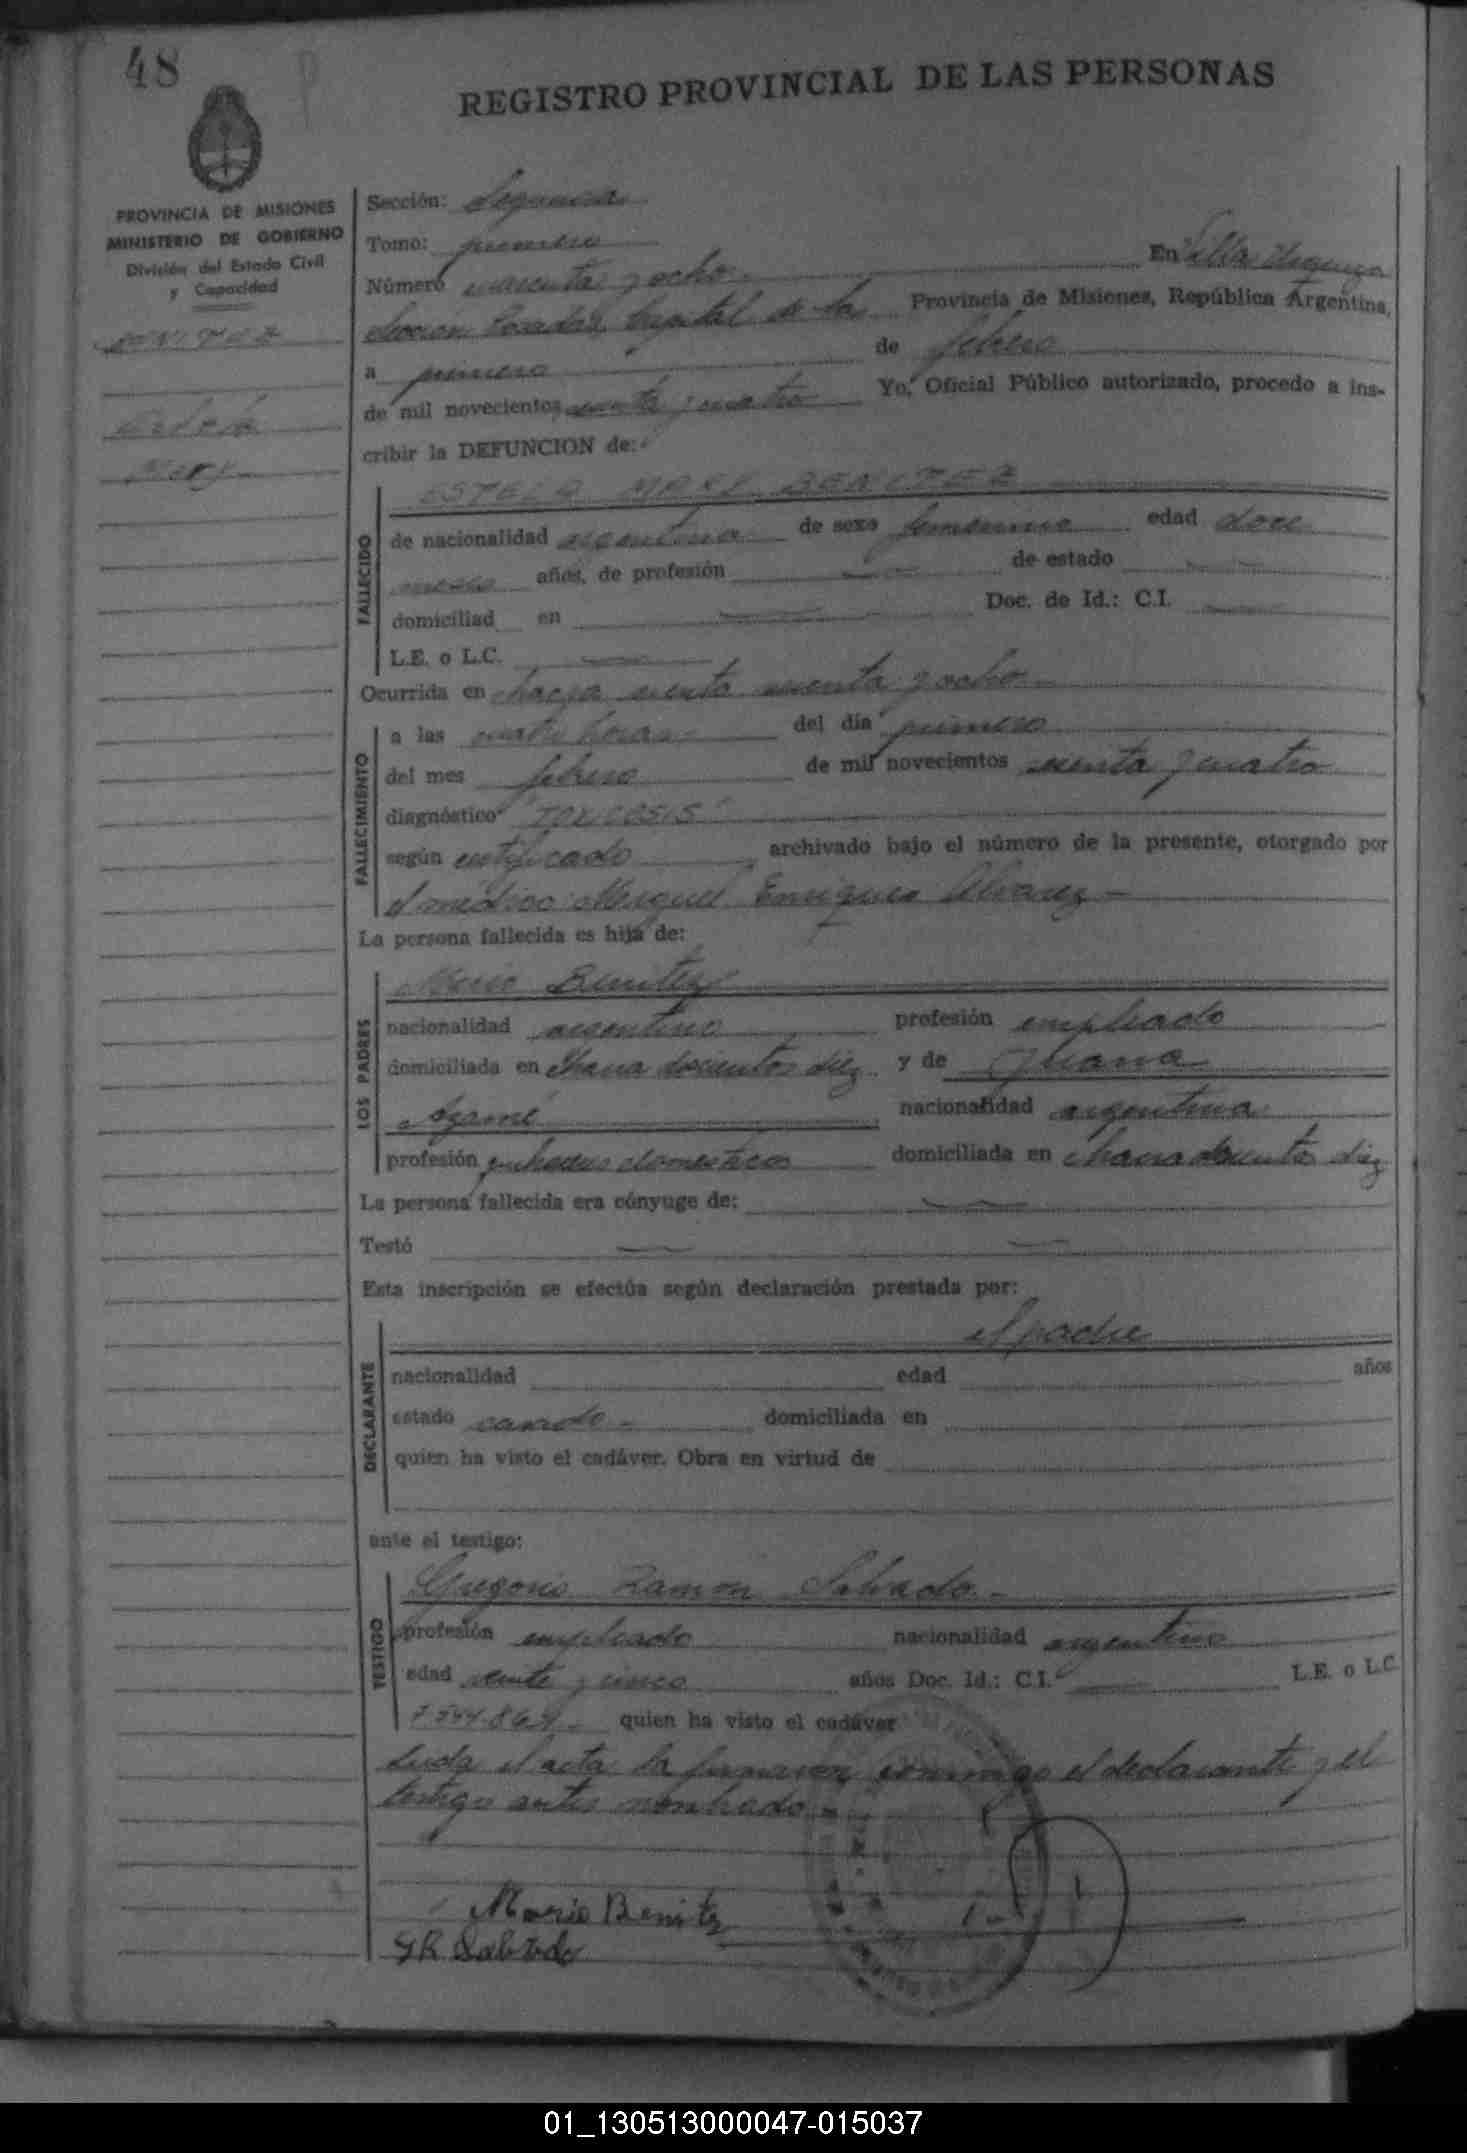 48
REGISTRO PROVINCIAL DE LAS PERSONAS
PROVINCIA DE MISIONES
MINISTERIO DE GOBIERNO
División del Estado Civil
y Capacidad
BENITEZ
Estela
Mary
Sección: Segunda
Tomo: primero
Número cuarenta y ocho En Villa Urquiza
Sección Posadas, Capital de la Provincia de Misiones, República Argentina,
a primero de febrero
de mil novecientos sesenta y cuatro Yo, Oficial Público autorizado, procedo a ins-
cribir la DEFUNCION de:
FALLECIDO
ESTELA MARY BENITEZ
de nacionalidad argentina de sexo femenino edad doce
meses años, de profesión de estado
domiciliad en Doc. de Id.: C.I.
L.E. o L.C.
Ocurrida en chacra ciento y ocho
FALLECIMIENTO
a las cuatro horas del día primero
del mes febrero de mil novecientos sesenta y cuatro
diagnóstico "TOXICOSIS"
según certificado archivado bajo el número de la presente, otorgado por
el médico Miguel Enrique Alvarez
La persona fallecida es hija de:
LOS PADRES
Mario Benitez
nacionalidad argentino profesión empleado
domiciliada en diez y de Juana
nacionalidad argentina
profesión quehaceres domesticos domiciliada en diez
La persona fallecida era cónyuge de:
Testó
Esta inscripción se efectúa según declaración prestada por:
DECLARANTE
el padre
nacionalidad edad años
estado casado domiciliada en
quien ha visto el cadáver. Obra en virtud de
ante el testigo:
TESTIGO
Gregorio Ramon
profesión empleado nacionalidad argentino
edad veinte y cinco años Doc. Id.: C.I. L.E. o L.C.
quien ha visto el cadáver
Leida el acta la firmaron conmigo el declarante y el
testigo antes nombrado
Mario Benitez
G R
01_130513000047-015037